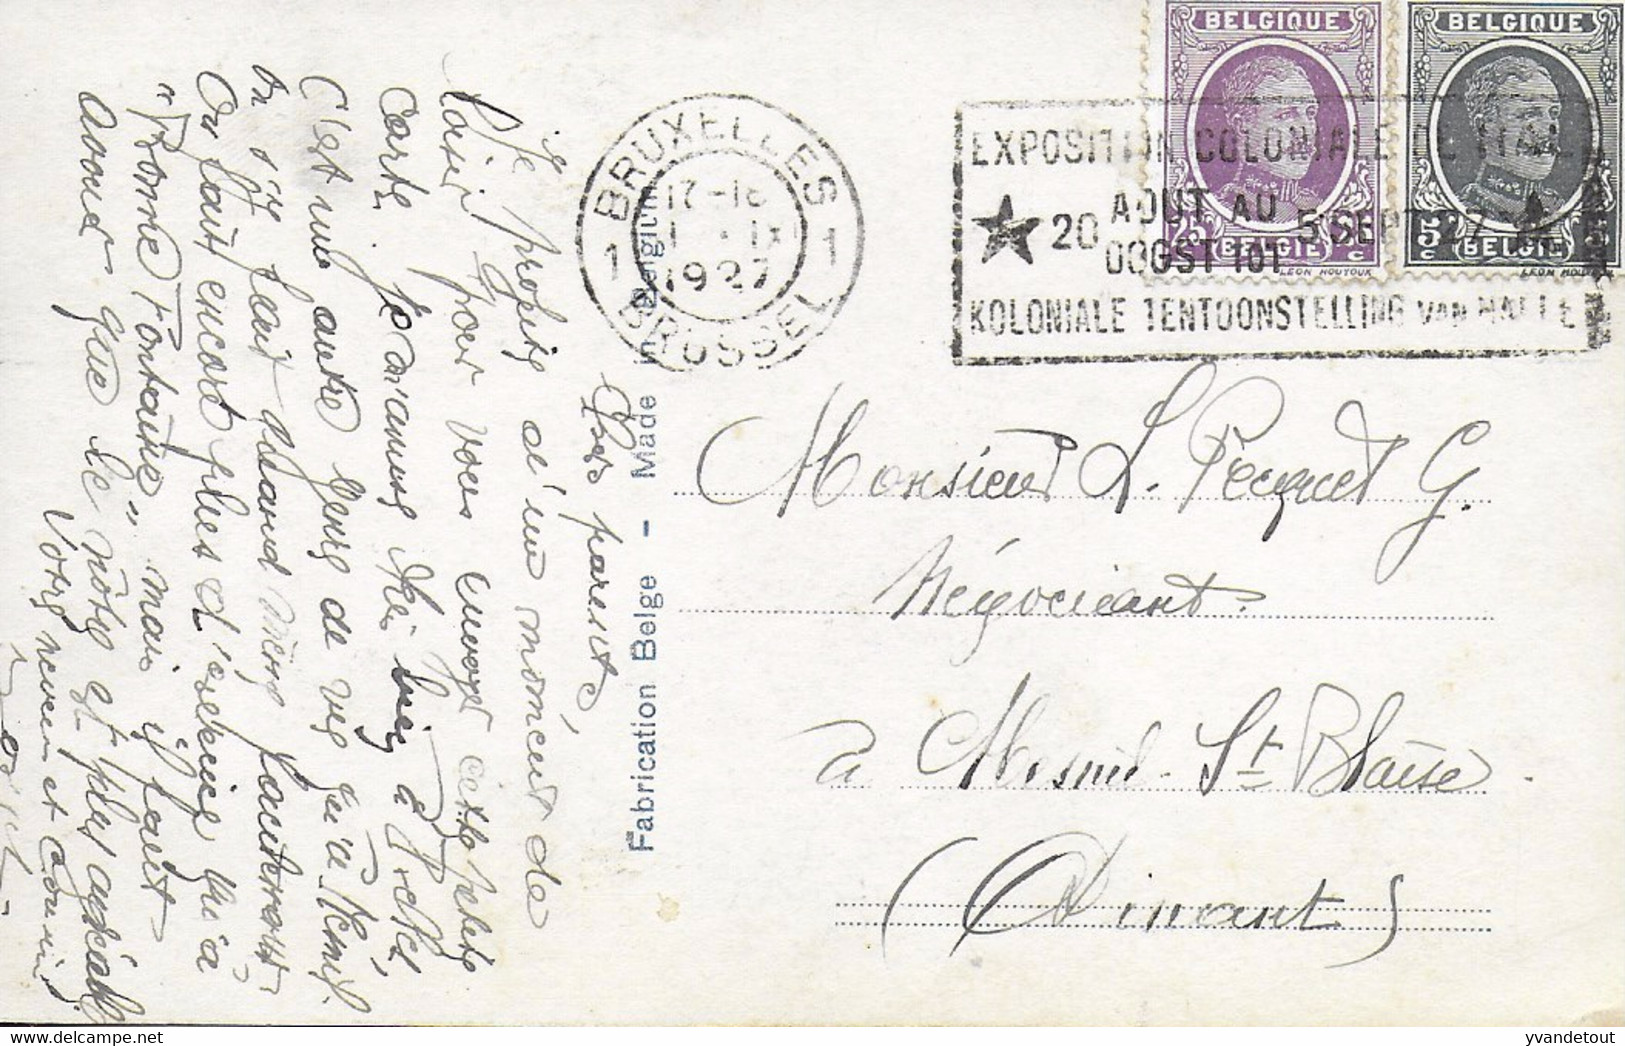 BELGIQUE
BELGIQUE
EXPOSITION COLONIALE DE HAL
20 AOUT AU 5 SEPT 27
OOGST TOT
KOLONIALE TENTOONSTELLING VAN HALLE
25 c BELGIË c
5 c BELGIË 5 c
LEON HOUYOUX
LEON HOUYOUX
BRUXELLES
17-18
1 IX
1927
1 1
BRUSSEL
Fabrication Belge - Made in Belgium
Chers parents,
Je profite d'un moment de
loisir pour vous envoyer cette petite
carte. Je m'amuse très bien à
C'est une autre genre de vie qu'à Mesnil.
On s'y
On fait encore plus d'
"Bonne Fontaine" mais il faut
avouer que le nôtre est plus agréable
Votre neveu et cousin
Monsieur L. Pecquet G.
Négociant.
à Mesnil-St Blaise
(Dinant)
yvandetout